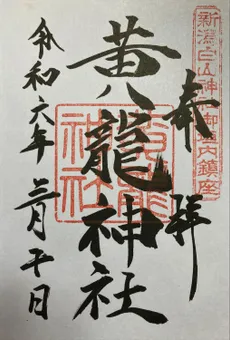 新潟白山神社御境内鎮座
奉拝
黄龍神社
黄龍神社
令和六年三月十日